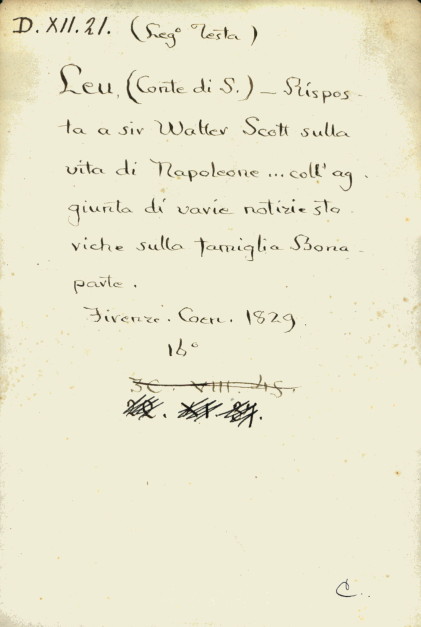 D. XII. 21. (Leg° Testa)
Leu, (Conte di S.) — Rispos-
ta a sir Walter Scott sulla
vita di Napoleone... coll' ag-
giunta di varie notizie sto
riche sulla famiglia Bona-
parte.
Firenze. Coen. 1829.
16°
3C. VIII. 45.
C.